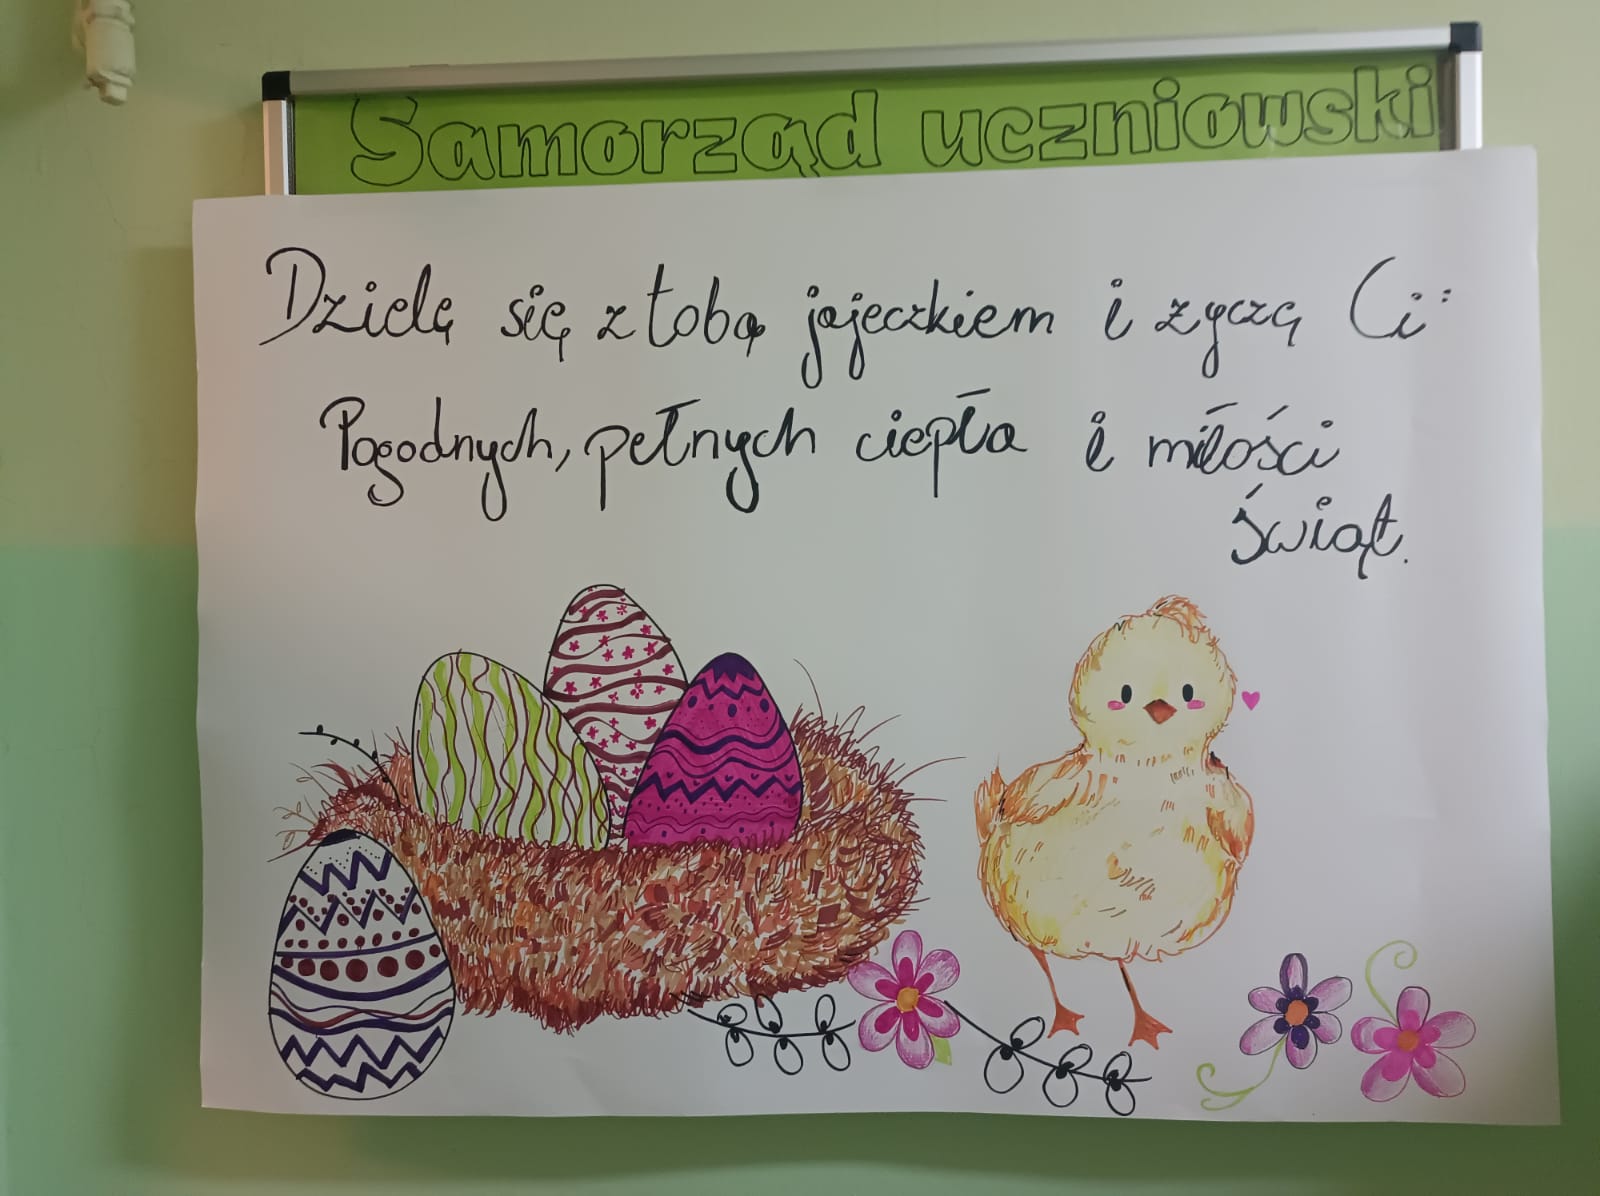 Samorząd uczniowski
Dzielę się z tobą jajeczkiem i zyczę Ci:
Pogodnych, pełnych ciepła i miłości
świąt.